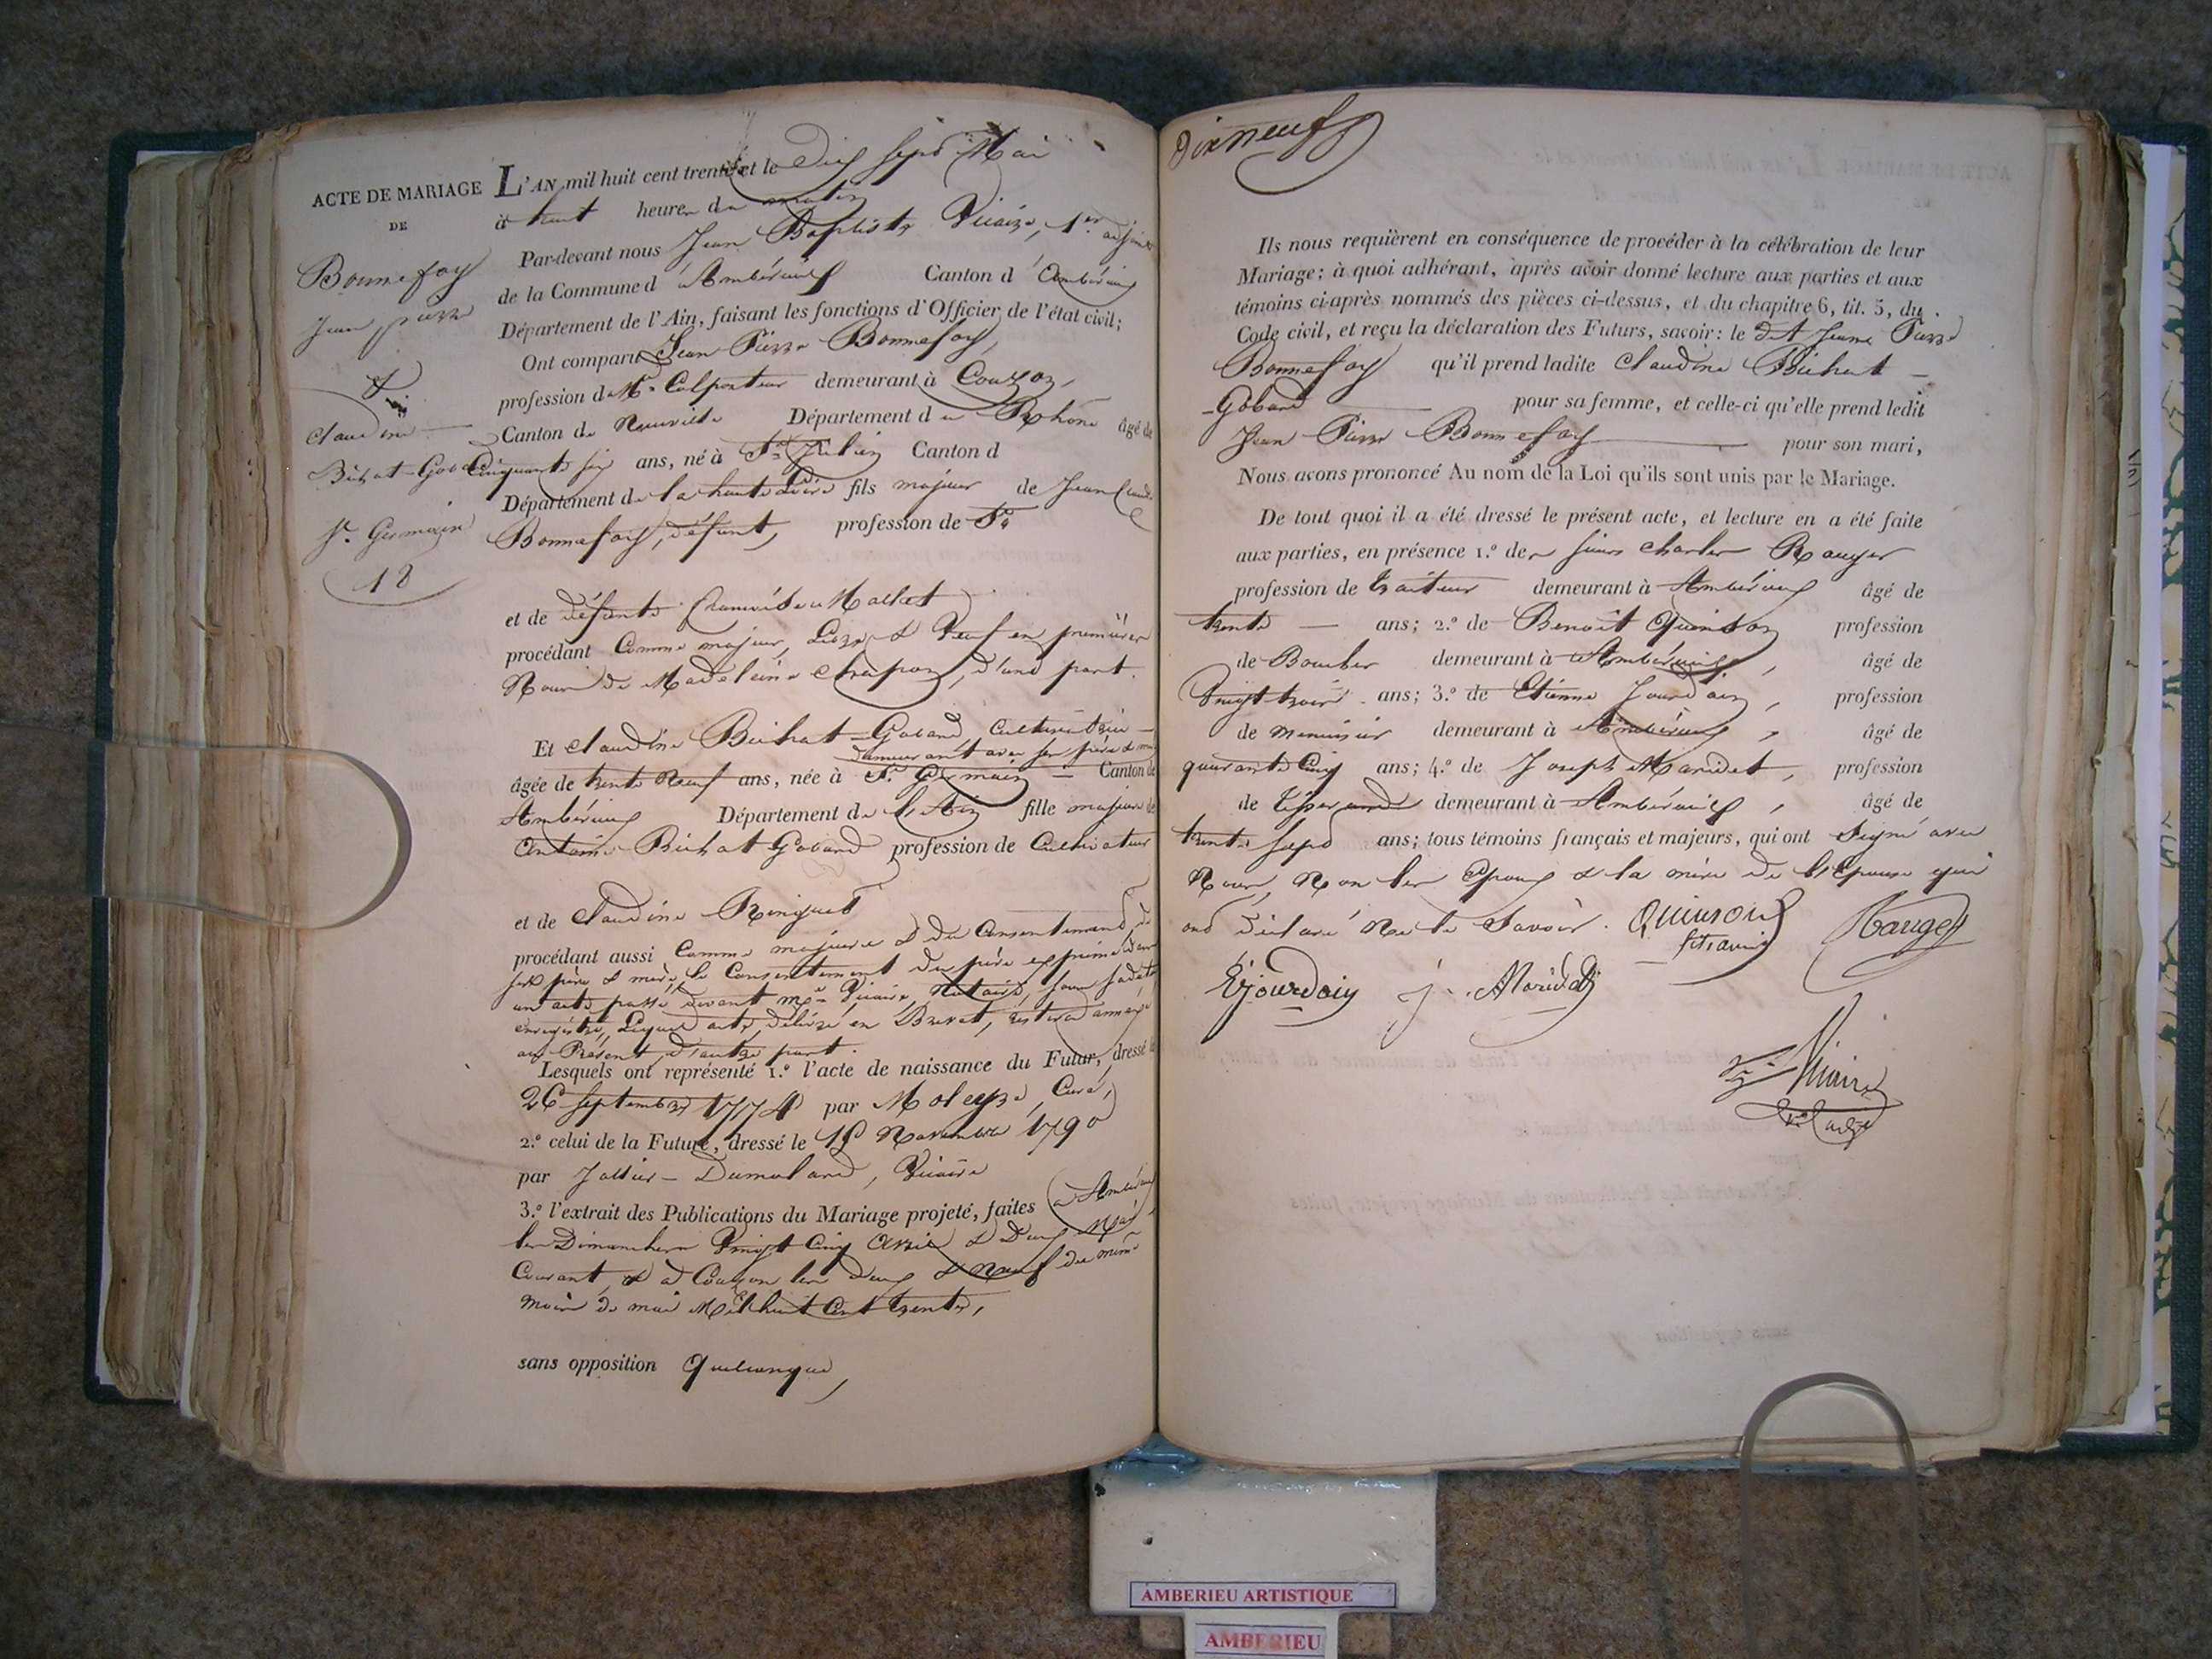 ACTE DE MARIAGE
DE
Bonnefoy
Jean pierre
&
Claudine
Bichat-Goband
St. Germain
18
L'AN mil huit cent trente et le Dix sept Mai
à huit heures du matin
Par-devant nous Jean Baptiste Vicaire, 1er adjoint
de la Commune d'Ambérieux Canton d'Ambérieux
Département de l'Ain, faisant les fonctions d'Officier de l'état civil;
Ont comparu Jean Pierre Bonnefoy,
profession de Md. Colporteur demeurant à Couzon,
Canton de Neuville Département du Rhône âgé de
Cinquante six ans, né à St. Julien Canton d
Département de la haute Loire fils majeur de Jean Claude
Bonnefoy, défunt, profession de
et de défunte Mallet
procédant Comme majeur, Libre & Veuf en premières
Noces de Madeleine Chapon, d'une part.
Et Claudine Bichat-Goband, Cultivatrice
demeurant avec ses père & mère
âgée de trente Neuf ans, née à St. Germain Canton de
Ambérieux Département de l'Ain fille majeure de
Antoine Bichat Goband profession de Cultivateur
et de Claudine Ringuet
procédant aussi Comme majeure & du Consentement de
ses père & mère, le Consentement du père exprimé dans
un acte passé devant me. Vicaire, Notaire, sous sa date
enregistré, Lequel acte, délivré en Brevet, restera annexé
au Présent, d'autre part.
Lesquels ont représenté 1.º l'acte de naissance du Futur, dressé le
26 septembre 1774 par Moleyre, Curé,
2.º celui de la Future, dressé le Novembre 1790
par Jallier-Dumolard, Vicaire
3.º l'extrait des Publications du Mariage projeté, faites à Ambérieux
les Dimanches Vingt Cinq Avril & Deux Mai
Courant, & à Couzon les deux & Neuf du même
mois de mai Mil huit Cent trente,
sans opposition Quelconque,
Dix neuf
Ils nous requièrent en conséquence de procéder à la célébration de leur
Mariage; à quoi adhérant, après avoir donné lecture aux parties et aux
témoins ci-après nommés des pièces ci-dessus, et du chapitre 6, tit. 5, du
Code civil, et reçu la déclaration des Futurs, savoir: le dit Jean Pierre
Bonnefoy qu'il prend ladite Claudine Bichat-
-Goband pour sa femme, et celle-ci qu'elle prend ledit
Jean Pierre Bonnefoy pour son mari,
Nous avons prononcé Au nom de la Loi qu'ils sont unis par le Mariage.
De tout quoi il a été dressé le présent acte, et lecture en a été faite
aux parties, en présence 1.º des sieurs Charles Rauger
profession de traiteur demeurant à Ambérieux âgé de
trente ans; 2.º de Benoit Quinson profession
de Boucher demeurant à Ambérieux, âgé de
Vingt trois ans; 3.º de Etienne Jourdain, profession
de menuisier demeurant à Ambérieux, âgé de
quarante Cinq ans; 4.º de Joseph Maridet, profession
de tisserand demeurant à Ambérieux, âgé de
trente sept ans; tous témoins français et majeurs, qui ont Signé avec
Nous, Non les Epoux & la mère de l'Epouse qui
ont déclaré Ne le Savoir. Quinson Rauger
E Jourdain j. Maridet
Vicaire
AMBERIEU ARTISTIQUE
AMBERIEU